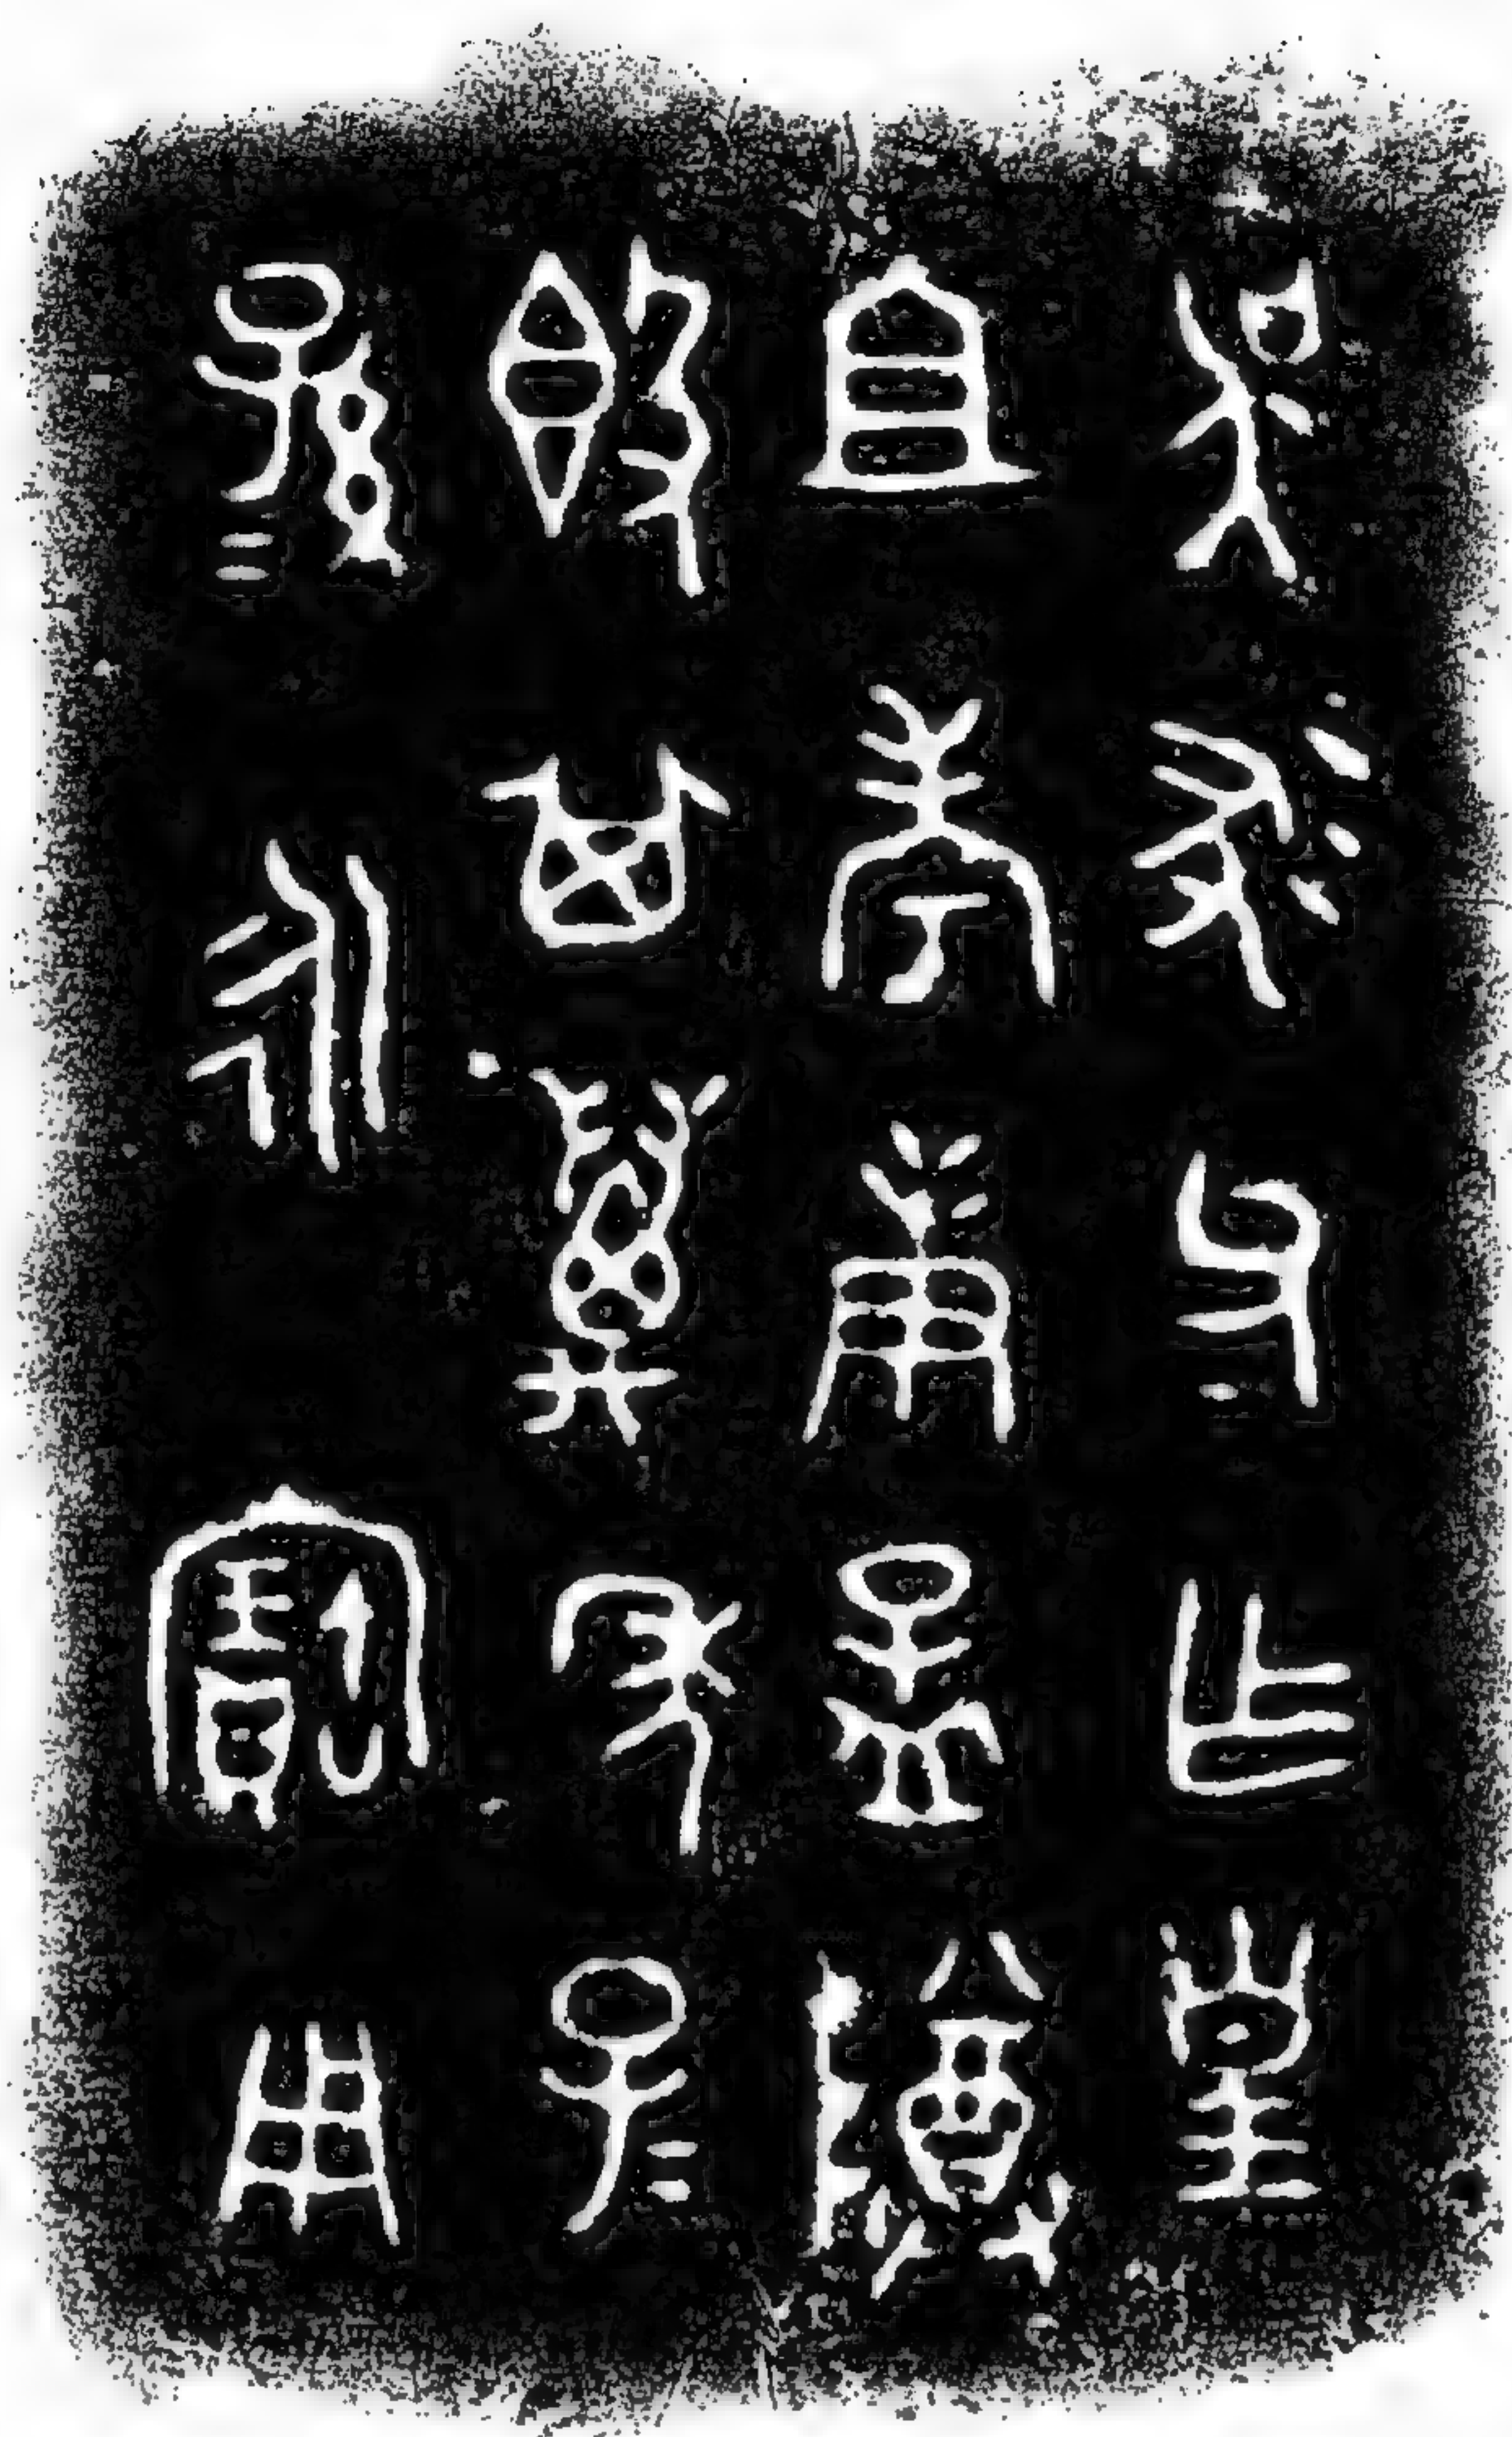 吳尨父乍皇
且考庚孟𨻰
𣪘其萬年子=
孫=永寶用